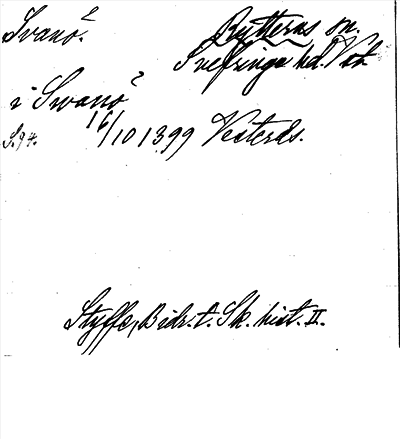 Svanö.
Rytterns sn.
Snefringe hd. Vstm.
i Swanö
S. 94.
16/10 1399 Vesterås.
Styffe, Bidr. t. Sk. hist. II.